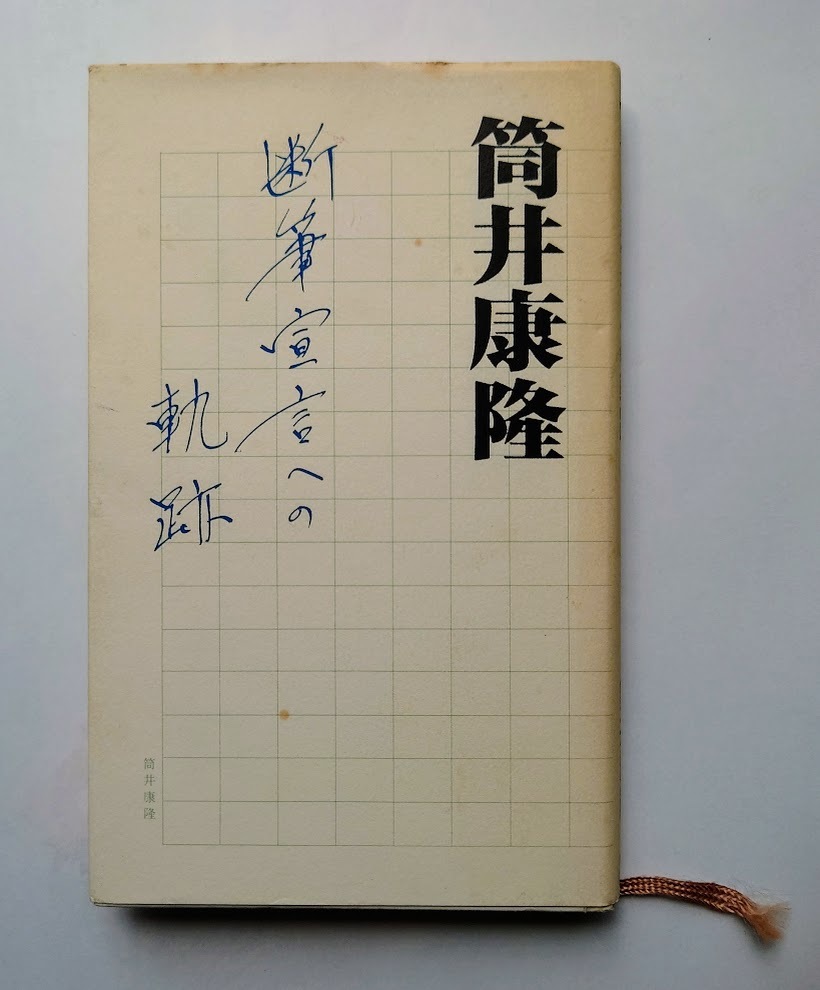 筒井康隆
断筆宣言への
軌跡
筒井康隆